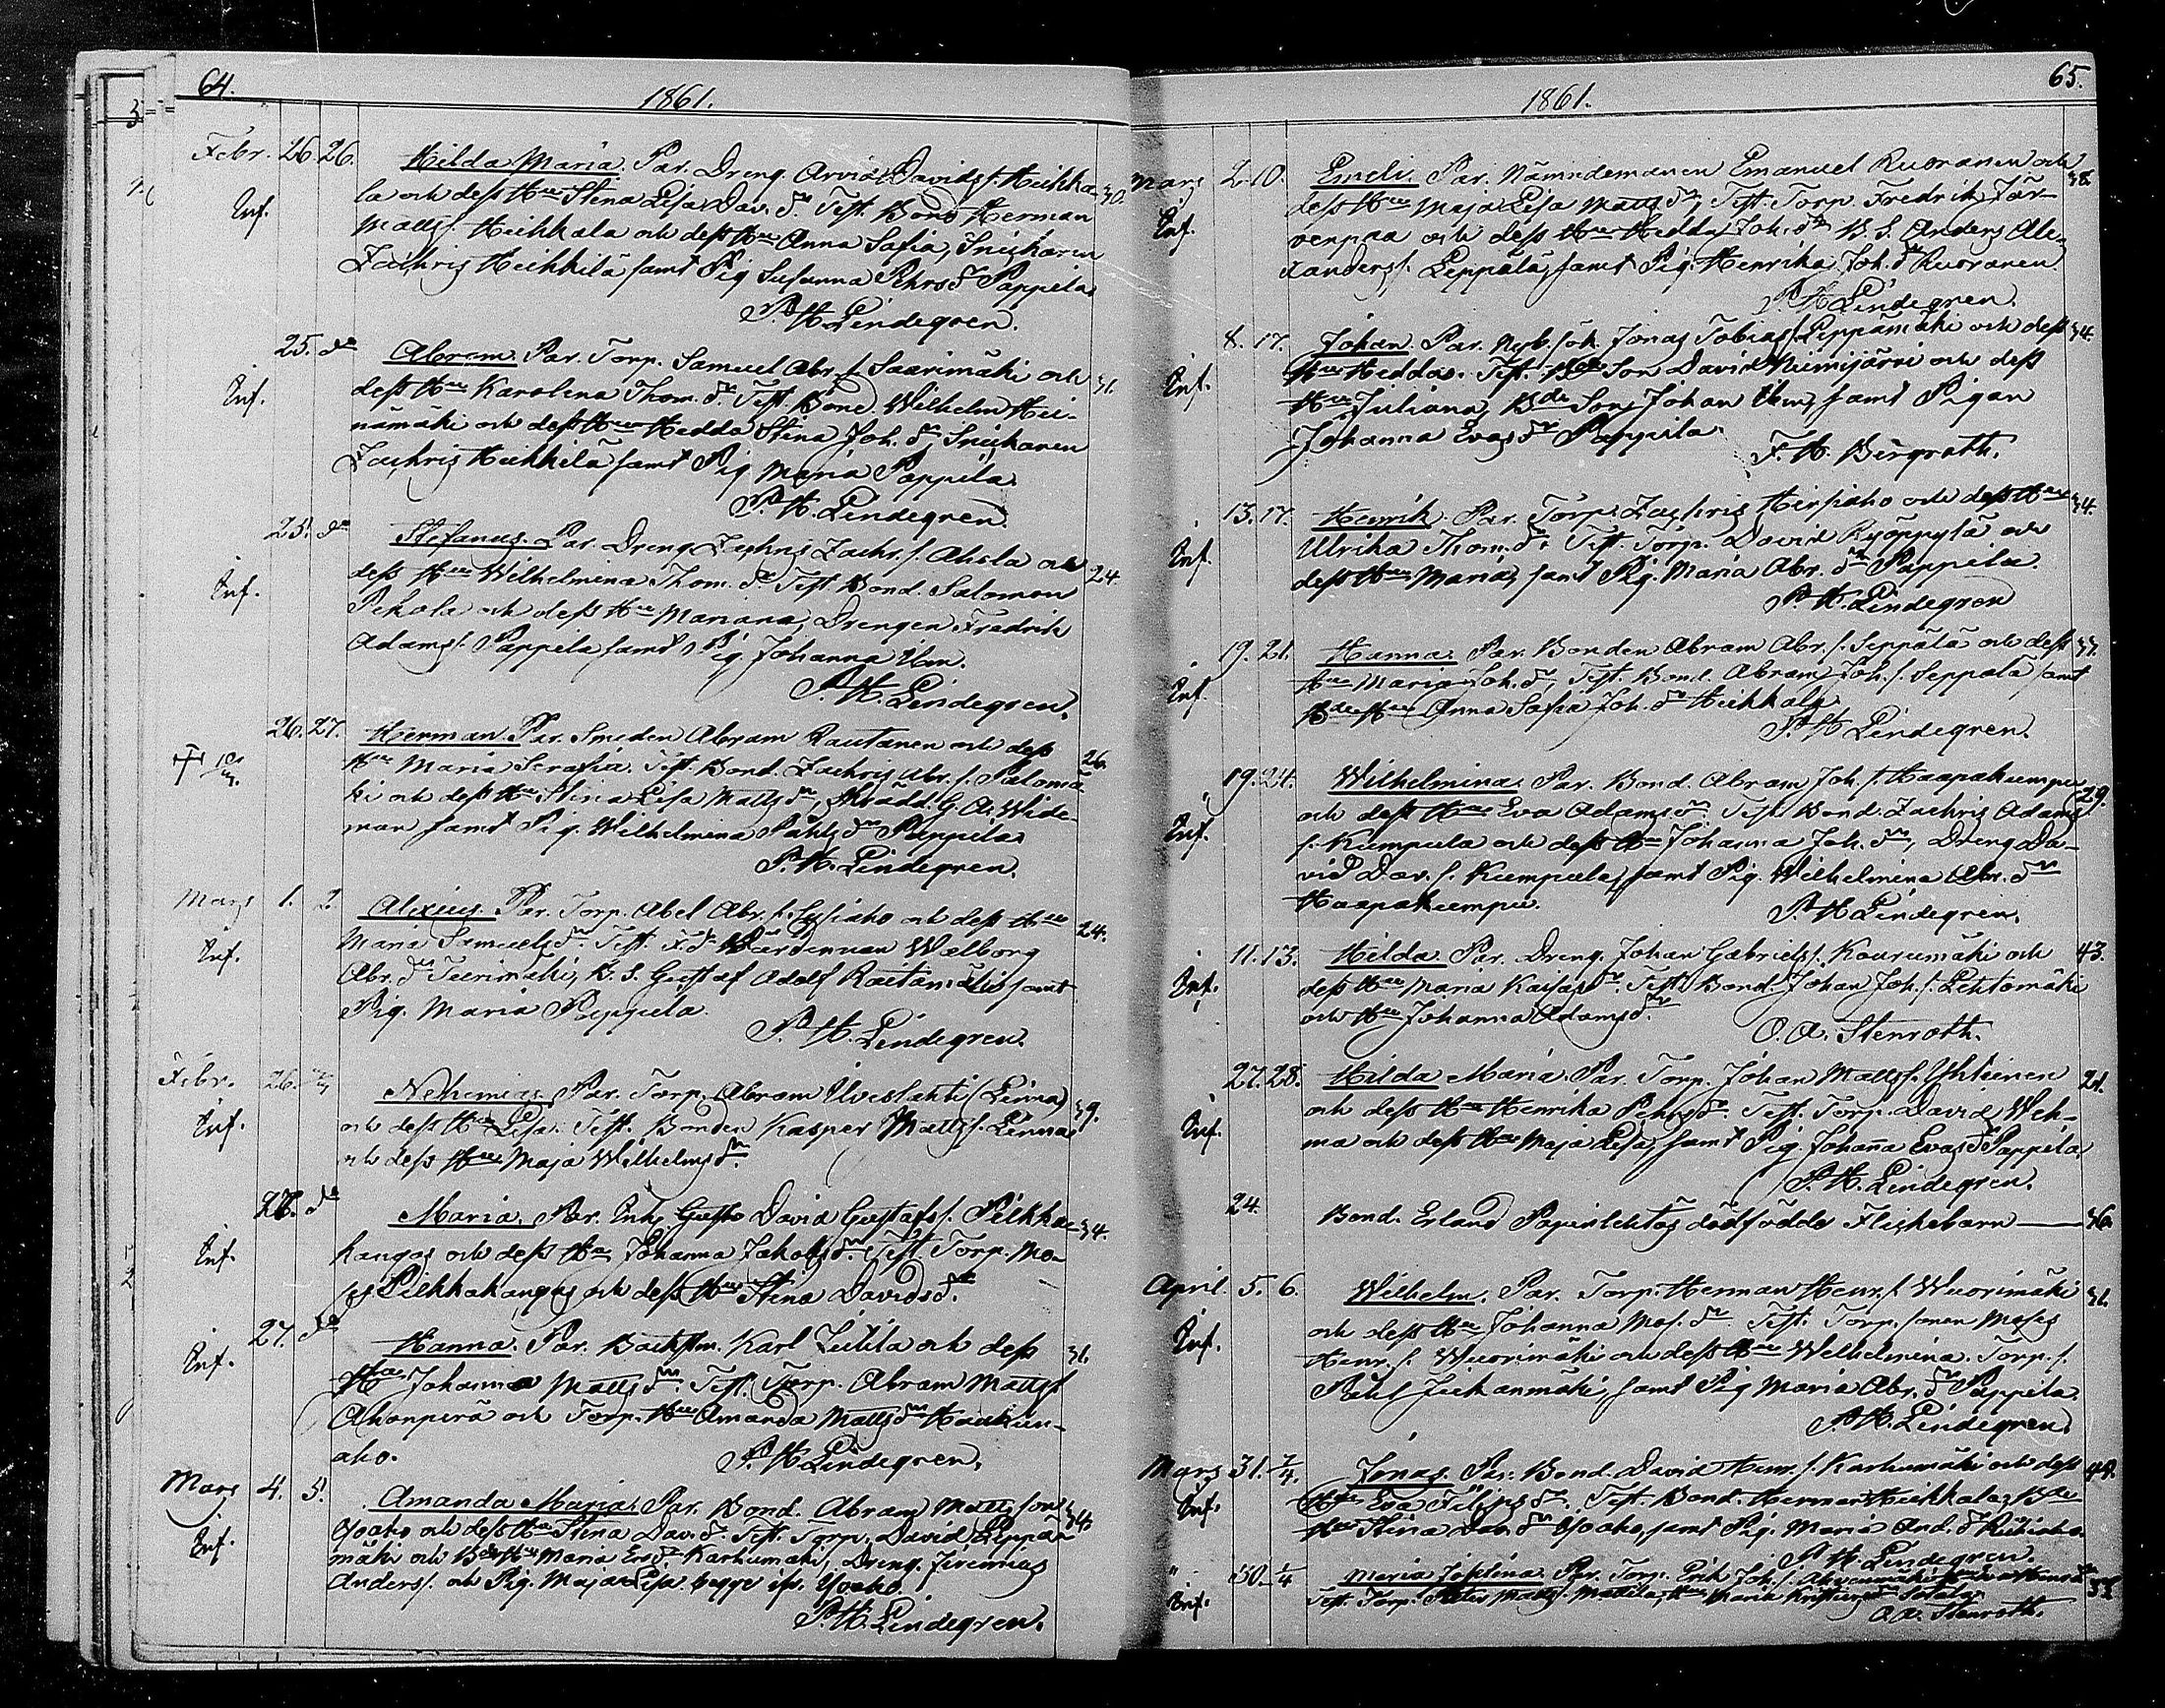 64.
1861.
Febr. 26. 26. Hilda Maria. Par. Dreng. Arvid Davids s. Heikka- 30.
Inf. la och dess Hu Stina Lisa Dav. dr. Test. Bond. Herman
Matts s. Heikkala och dess Hu Anna Safia, Snickaren
Zachris Heikkilä samt Pig Susanna Pehrs dr Pappila.
P. H. Lindegren.
25. do Abram. Par. Torp. Samuel Abr. s. Saarimäki och 31.
Inf. dess Hu Karolina Thom. dr. Test. Bond. Wilhelm Hei-
nämäki och dess Hu Hedda Stina Joh. dr Snickaren
Zachris Heikkilä samt Pig Maria Pappila.
P. H. Lindegren.
25. do Stefanus. Par. Dreng Zachris Zachr. s. Ahola och 24.
Inf. dess Hu Wilhelmina Thom. dr Test. Bond. Salomon
Pekola och dess Hu Mariana, Drengen Fredrik
Adams s. Pappila samt Pig. Johanna ibm.
P. H. Lindegren.
26. 27. Herman. Par. Smeden Abram Rautanen och dess 26.
Hu Maria Serafia. Test. Bond. Zachris Abr. s. Palomä
ki och dess Hu Stina Lisa Matts dr, Skrädd. G. A. Wide-
man samt Pig. Wilhelmina Påhls dr Pappila.
P. H. Lindegren.
Mars 1. 2. Alexius. Par. Torp. Abel Abr. s. Sysiaho och dess Hu 24.
Inf. Maria Samuels dr. Test. F. d. Wärdinnan Walborg
Abr. dr Teerimäki, B. S. Gustaf Adolf Rautamäki samt
Pig. Maria Pappila.
P. H. Lindegren.
Febr. 26. Nehemias. Par. Torp. Abram Uveslahti (Linna) 39.
Inf. och dess Hu Lisa. Test. Bonden Kasper Matts s. Linna
och dess Hu Maja Wilhelms dr.
28. do Maria. Par. Inh. David Gustafs s. Pilkka- 34.
Inf. kangas och dess Hu Johanna Jakobs dr. Test. Torp. Mo-
ses Pilkkakangas och dess Hu Stina Davids dr.
27. do Hanna. Par. Backstm. Karl Lillila och dess 31.
Inf. Hu Johanna Matts dr. Test. Torp. Abram Matts s.
Ahonperä och Torp. Hu Amanda Matts dr Haukun-
aho. P. H. Lindegren.
Mars 4. 5. Amanda Maria. Par. Bond. Abram Matts son 34.
Inf. Yoaho och dess Hu Stina Dav. dr. Test. Torp. David Leppä-
mäki och Bde Hu Maria Ers dr Karhumäki, Dreng. Jeremias
Anders s. och Pig. Maja Lisa begge ifr. Yoaho.
P. H. Lindegren.
65.
1861.
Mars 2. 10. Emeli. Par. Nämndemannen Emanuel Ruoranen och 38.
Inf. dess Hu Maja Lisa Matts dr, Test. Torp. Fredrik Jär-
venpää och dess Hu Hedda Joh. dr B. S. Anders Ale-
xanders s. Leppälä, samt Pig. Henrika Joh. dr Ruoranen.
P. H. Lindegren.
8. 17. Johan. Par. Nyb. Joh. Jonas Tobias s. Leppämäki och dess 34.
Inf. Hu Hedda. Test. Bde Son David Niinijärvi och dess
Hu Juliana, Bde Son Johan ibm, samt Pigan
Johanna Evas dr Pappila.
F. H. Bergroth.
13. 17. Henrik. Par. Torp. Zachris Hirsiaho och dess Hu 34.
Inf. Ulrika Thom. dr. Test. Torp. David Ryöppylä och
dess Hu Maria, samt Pig. Maria Abr. dr Pappila.
P. H. Lindegren
19. 21. Hanna. Par. Bonden Abram Abr. s. Seppälä och dess 37.
Inf. Hu Maria Joh. dr, Test. Bond. Abram Joh. s. Seppälä samt
Bde Hu Anna Safia Joh. dr Heikkala.
P. H. Lindegren.
19. 24. Wilhelmina. Par. Bond. Abram Joh. s. Haapakumpu 29.
Inf. och dess Hu Eva Adams dr. Test. Bond. Zachris Adams
s. Kumpula och dess Hu Johanna Joh. dr, Dreng Da-
vid Dav. s. Kumpula, samt Pig. Wilhelmina Abr. dr
Haapakumpu. P. H. Lindegren.
11. 13. Hilda. Par. Dreng. Johan Gabriels s. Kourumäki och 43.
Inf. dess Hu Maria Kaisas dr. Test. Bond. Johan Joh. s. Lehtomäki
och Hu Johanna Adams dr.
O. A. Stenroth.
27. 28. Hilda Maria. Par. Torp. Johan Matts s. Yhteinen 21.
Inf. och dess Hu Henrika Pehrs dr. Test. Torp. David Weh-
ma och dess Hu Maja Lisa, samt Pig. Johanna Evas dr Pappila.
P. H. Lindegren.
24. Bond. Erland Papinlehtos dödfödda Flickebarn 36.
April. 5. 6. Wilhelm. Par. Torp. Herman Henr. s. Wuorimäki 31.
Inf. och dess Hu Johanna Mos. dr. Test. Torp. sonen Moses
Henr. s. Wuorimäki och dess Hu Wilhelmina. Torp. s.
Påhl Juhanmäki, samt Pig Maria Abr. dr Pappila.
P. H. Lindegren.
Mars 31. 7/4. Jonas. Par. Bond. David Henr. s. Karhumäki och dess 44.
Inf. Hu Eva Filips dr. Test. Bond. Herman Heikkala, Bde
Hu Stina Dav. dr Yoaho, samt Pig. Maria And. dr
P. H. Lindegren.
30. 1/4 Maria Josefina. Par. Torp. Erik Joh. s.
Inf. Test. Torp. Petter Matts s. Mattila, Hu Maria
O. A. Stenroth.